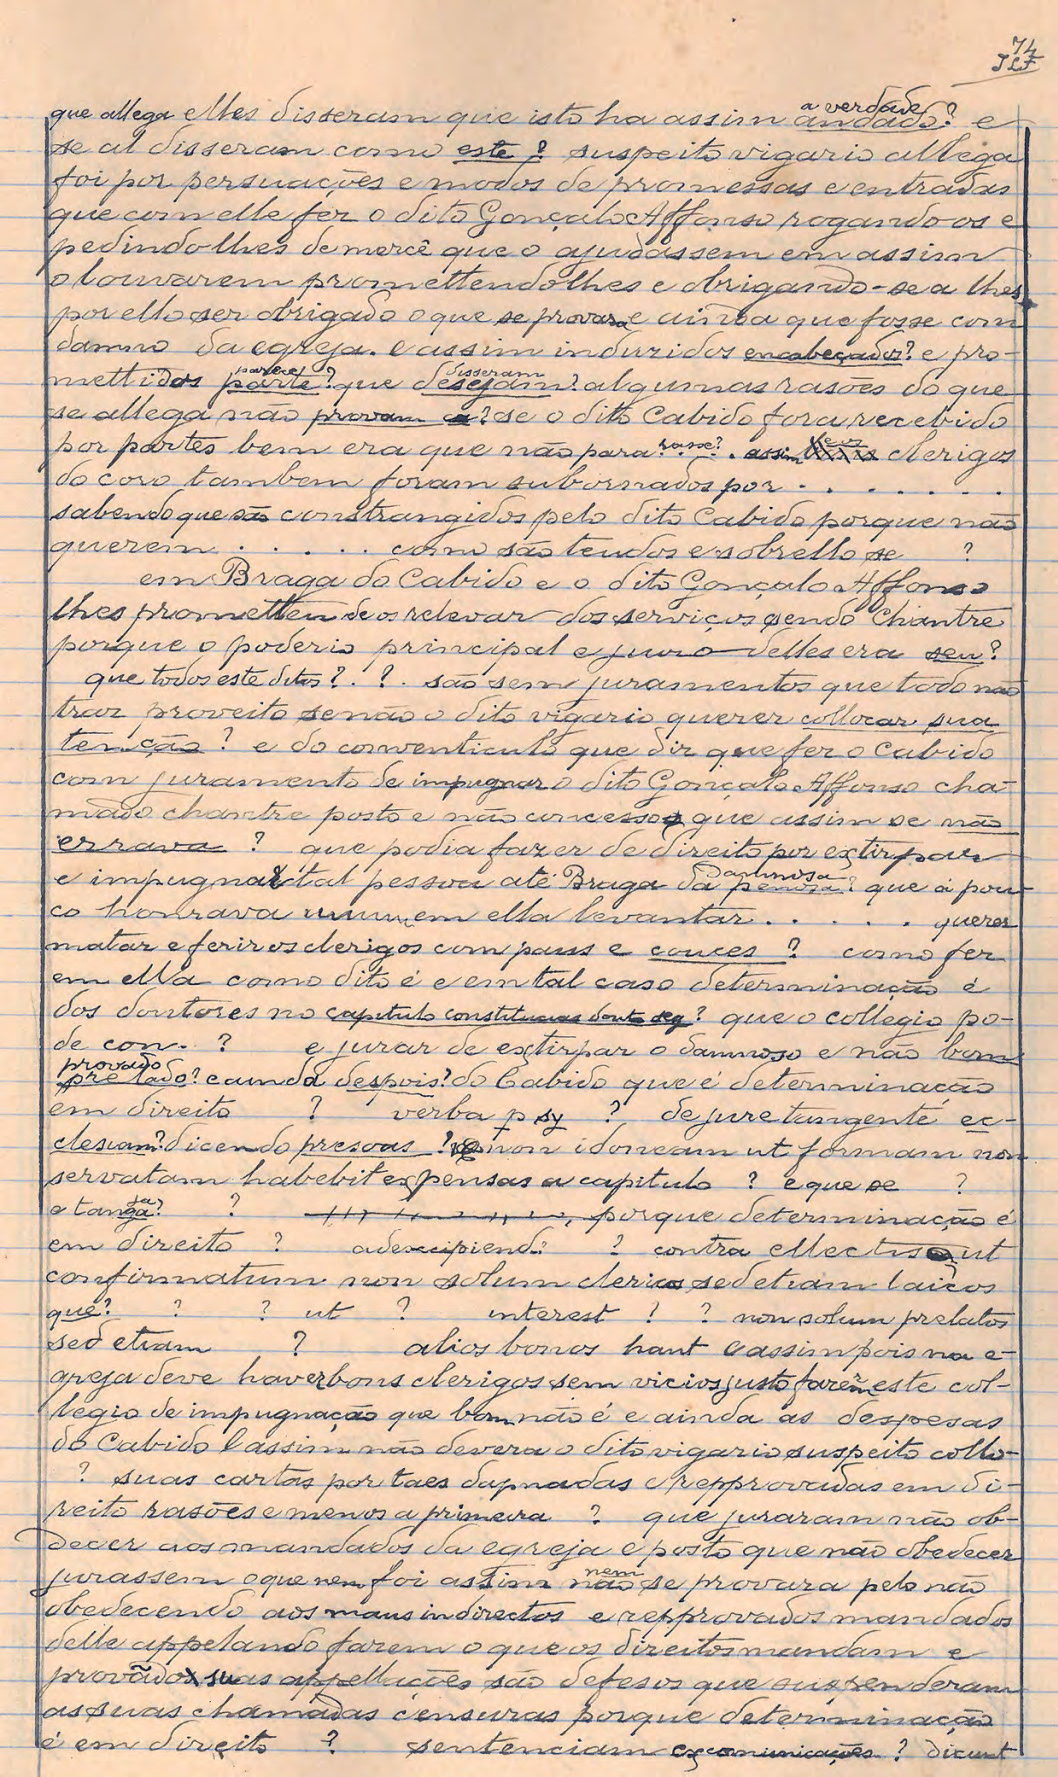 74
que allega elles disseram que isto ha assim andado? a verdade e
se al disseram como este ? suspeito vigario allega
foi por persuações e modos de promessas e entradas
que com elle fez o dito Gonçalo Affonso rogando-os e
pedindo-lhes de mercê que o ajudassem em assim
o louvarem promettendolhes e obrigando-se a lhes
por ello ser obrigado o que se provara e ainda que fosse com
damno da egreja. e assim induzidos encabeçados? e pro-
mettidos parte? parece que desejam? disseram algumas rasões do que
se allega não provam ca? se o dito Cabido fora recebido
por partes bem era que não para . assim clerigos
do coro tambem foram subornados por . . . . . . .
sabendo que são constrangidos pelo dito Cabido porque não
querem . . . . . como são teudos e sobrello se ?
em Braga do Cabido e o dito Gonçalo Affonso
lhes prometteu de os relevar dos serviços sendo Chantre
porque o poderio principal e delles era seu?
que todos este ditos ? . ? . são sem juramentos que todo não
traz proveito senão o dito vigario querer collocar sua
tenção ? e do conventiculo que diz que fez o Cabido
com juramento de impugnar o dito Gonçalo Affonso cha-
mado chantre posto e não concesso que assim se não
errava ? que podia fazer de direito por extirpar
e impugnar tal pessoa até Braga da penosa? damnosa que a pou-
co honrava em ella levantar . . . . . querer
matar e ferir os clerigos com paus e couces ? como fez
em ella como dito é e em tal caso determinação é
dos doutores no capitulo ? que o collegio po-
de con. ? e jurar de extirpar o damnoso e não bom
provado
prelado? e ainda despois? do Cabido que é determinação
em direito ? verba p sy ? de jure tangente ec-
clesiam? dicendo presoas ? non idoneam ut formam non
servatam habebit expensas a capitulo ? e que se ?
e tanga? ? porque determinação é
em direito ? ? contra ellectus ut
confirmatum non solum clericos sed etiam laicos
que? ? ? ut ? interest ? ? non solum prelatos
sed etiam ? alios bonos haut e assim pois na e-
greja deve haver bons clerigos sem vicios justo fazem este col-
legio de impugnação que bom não é e ainda as despesas
do Cabido e assim não devera o dito vigario suspeito collo-
? suas cartas por taes dapnadas e repprovadas em di-
reito rasões e menos a primeira ? que juraram não ob-
decer aos mandados da egreja e posto que não obedecer
jurassem o que nem foi assim não nem se provara pelo não
obedecendo aos maus indirectos e repprovados mandados
delle appelando fazem o que os direitos mandam e
provado suas appellações são defesos que suspenderam
as suas chamadas censuras porque determinação
é em direito ? sentenciam excomunicações ? dicunt